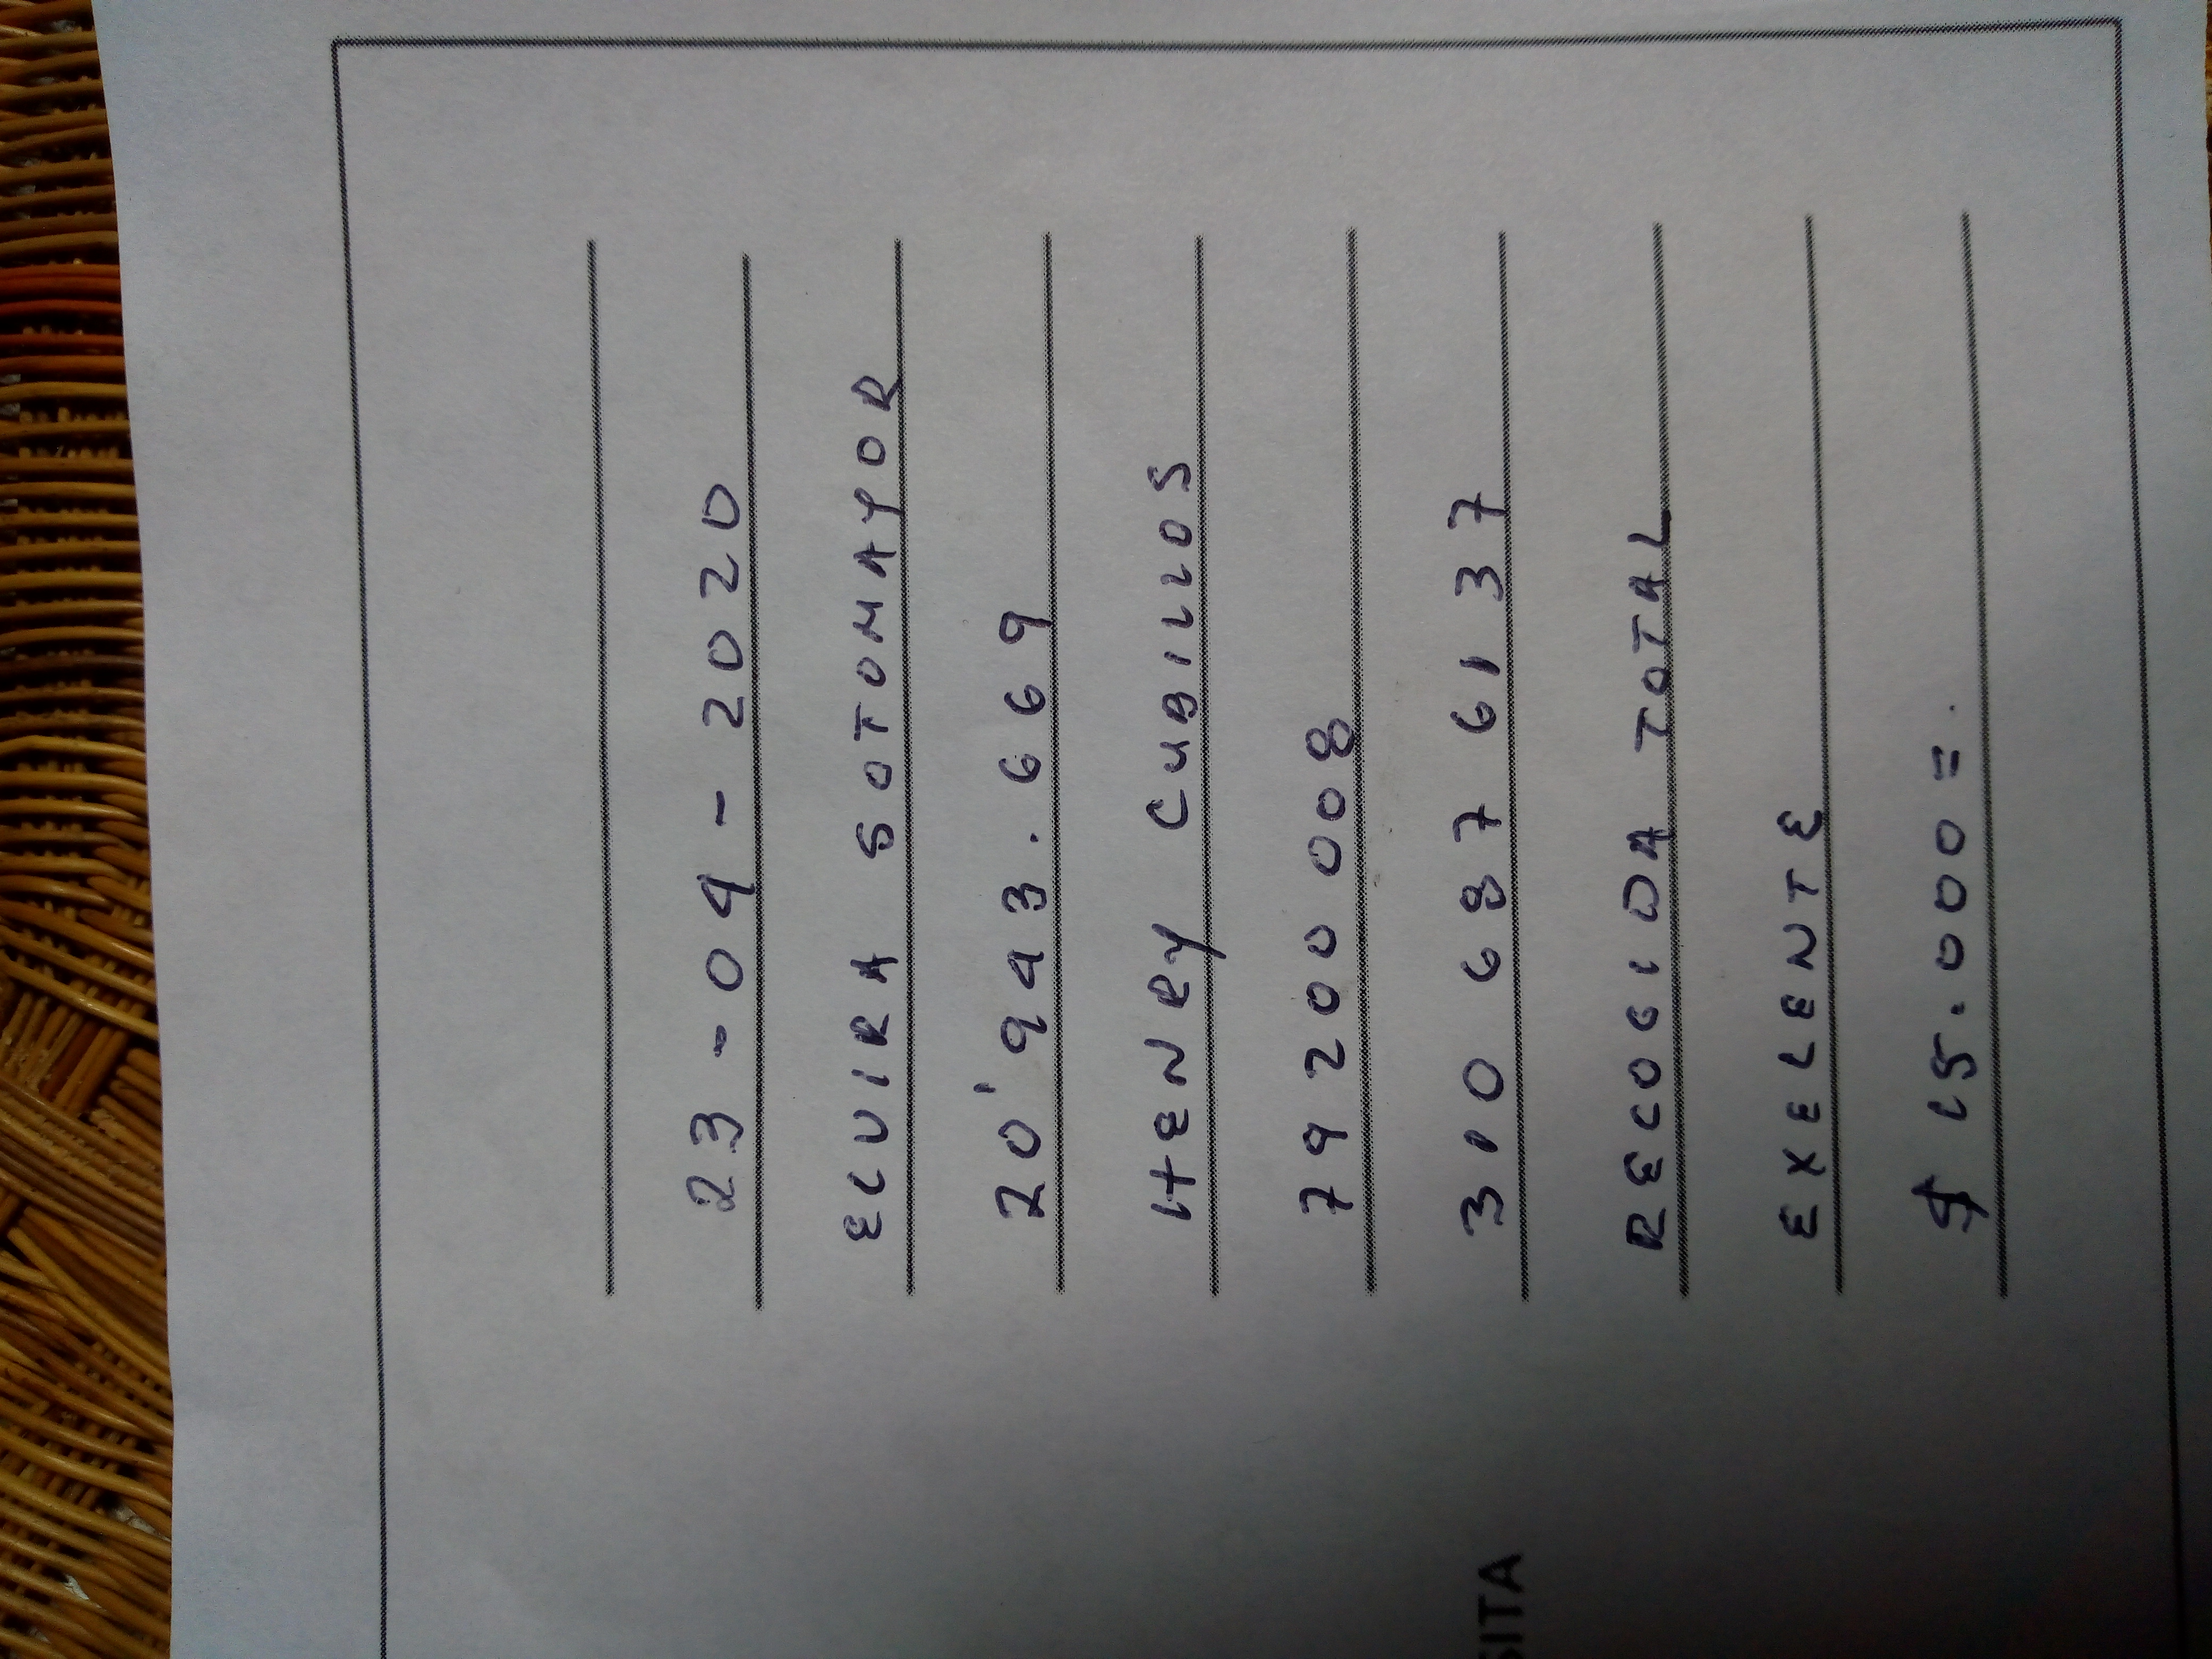 23-04-2020
ELVIRA SOTOMAYOR
20'943.669
HENRY CUBILLOS
79200008
310 6876137
RECOGIDA TOTAL
EXELENTE
$ 15.000=.
SITA